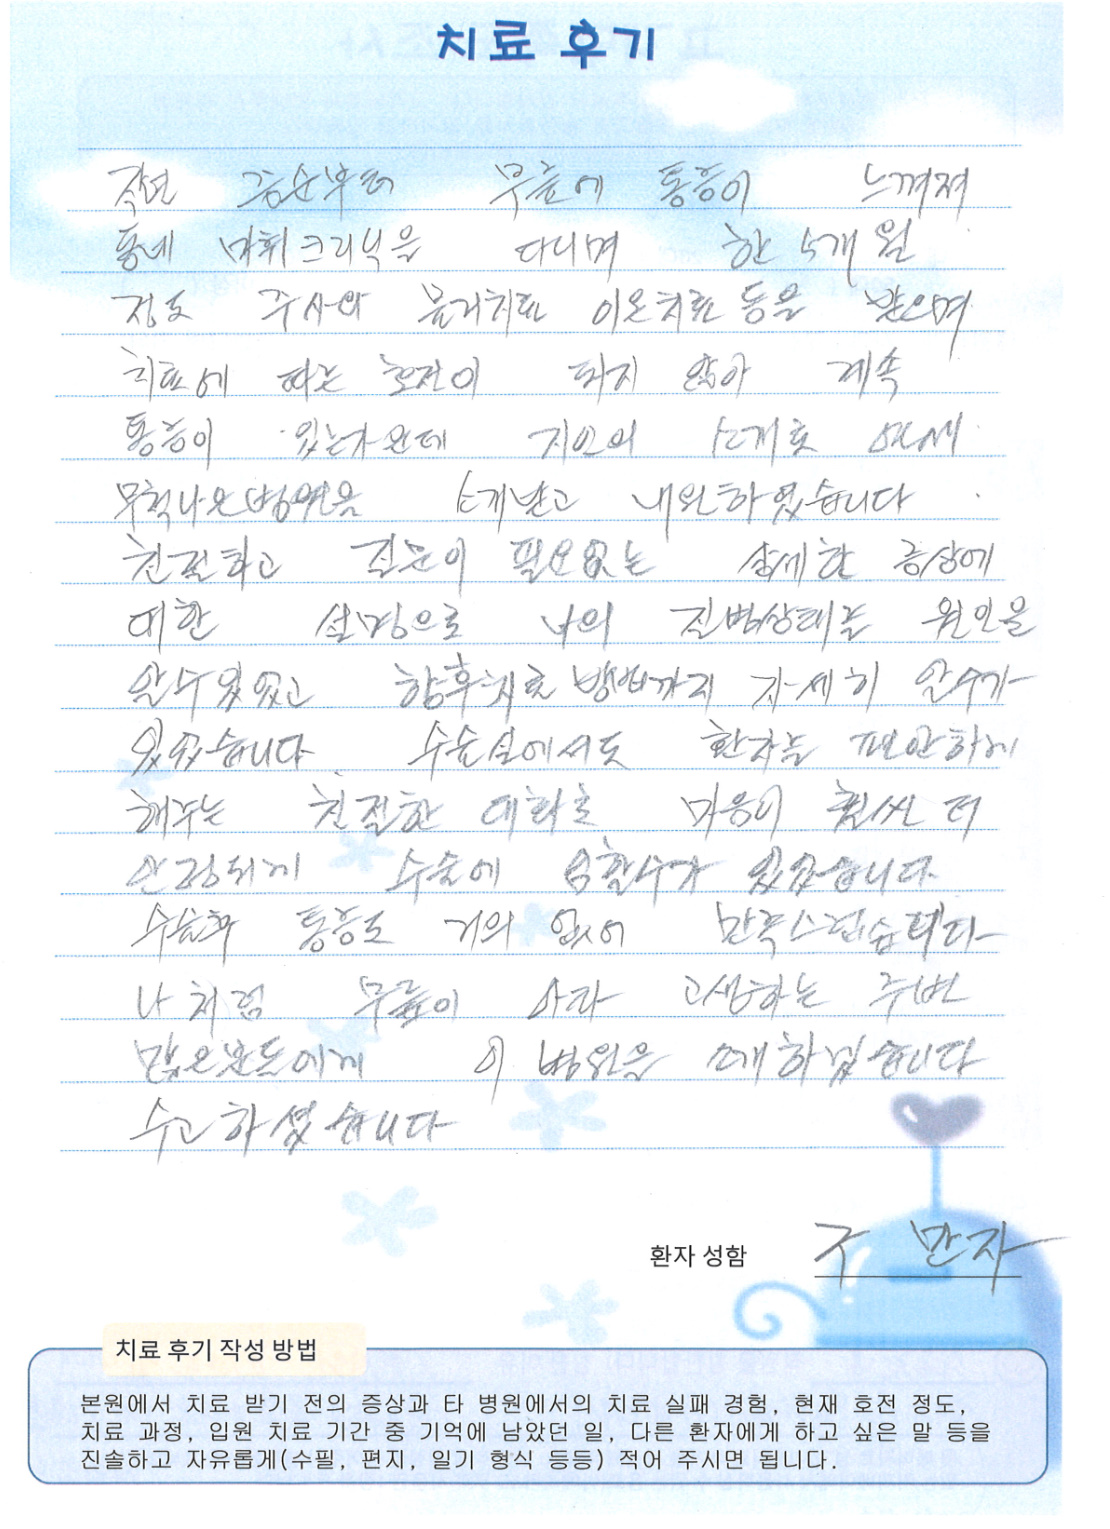 치료 후기
작년 부터 무릎에 통증이 느껴져
동네 마취크리닉을 다니며 한 5개월
정도 주사와 물리치료 이온치료 등을 받으며
치료에 따는 호전이 되지 않아 계속
통증이 있는가운데 지인의 소개로
병원을 소개받고 내원하였습니다
친절하고 질문이 필요없는 상세한 증상에
대한 설명으로 나의 질병상태는 원인을
알수있었고 향후치료 방법까지 자세히 알수가
있었습니다 수술실에서도 환자를 편안하게
해주는 친절한 대화로 마음이 훨씬 더
안정되게 수술에 임할수가 있었습니다.
수술후 통증도 거의 없어 만족스럽습니다
나처럼 무릎이 아파 고생하는 주변
많은분들에게 이 병원을 소개하겠습니다
수고하셨습니다
환자 성함 구 만자
치료 후기 작성 방법
본원에서 치료 받기 전의 증상과 타 병원에서의 치료 실패 경험, 현재 호전 정도,
치료 과정, 입원 치료 기간 중 기억에 남았던 일, 다른 환자에게 하고 싶은 말 등을
진솔하고 자유롭게(수필, 편지, 일기 형식 등등) 적어 주시면 됩니다.